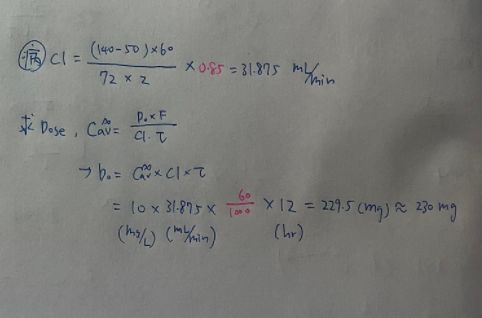 病 Cl = (140-50)×60 / 72 × 2 × 0.85 = 31.875 mL/min
求 Dose , Cav∞ = D₀×F / Cl·τ
→ D₀ = Cav∞ × Cl × τ
= 10 × 31.875 × 60/1000 × 12 = 229.5 (mg) ≈ 230 mg
(mg/L) (mL/min) (hr)